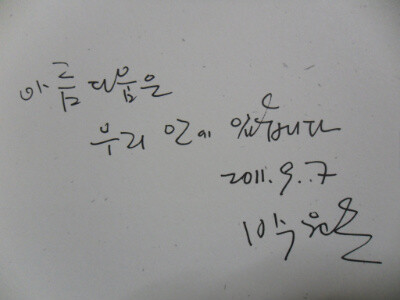 아름다움은
우리 안에 있습니다
2011. 9. 7